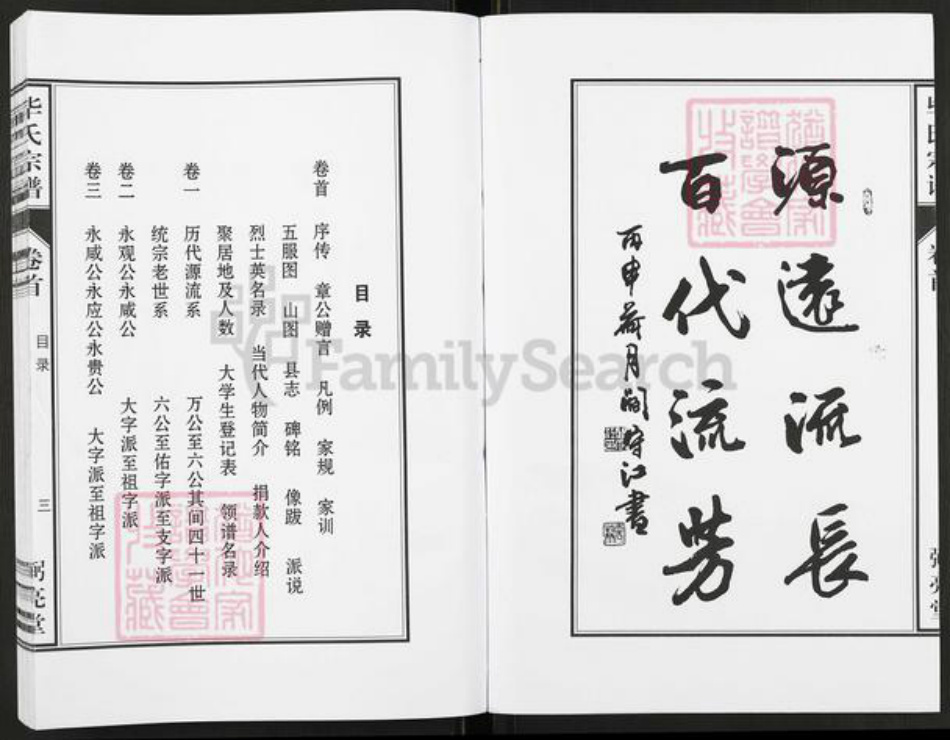 源远流长
百代流芳
丙申荷月阎守江書
毕氏宗谱
卷首
目录
三
弼亮堂
目录
卷首 序传 章公赠言 凡例 家规 家训
五服图 山图 县志 碑铭 像跋 派说
烈士英名录 当代人物简介 捐款人介绍
聚居地及人数 大学生登记表 领谱名录
卷一 历代源流系 万公至六公其间四十一世
统宗老世系 六公至佑字派至支字派
卷二 永观公永咸公 大字派至祖字派
卷三 永咸公永应公永贵公 大字派至祖字派
FamilySearch